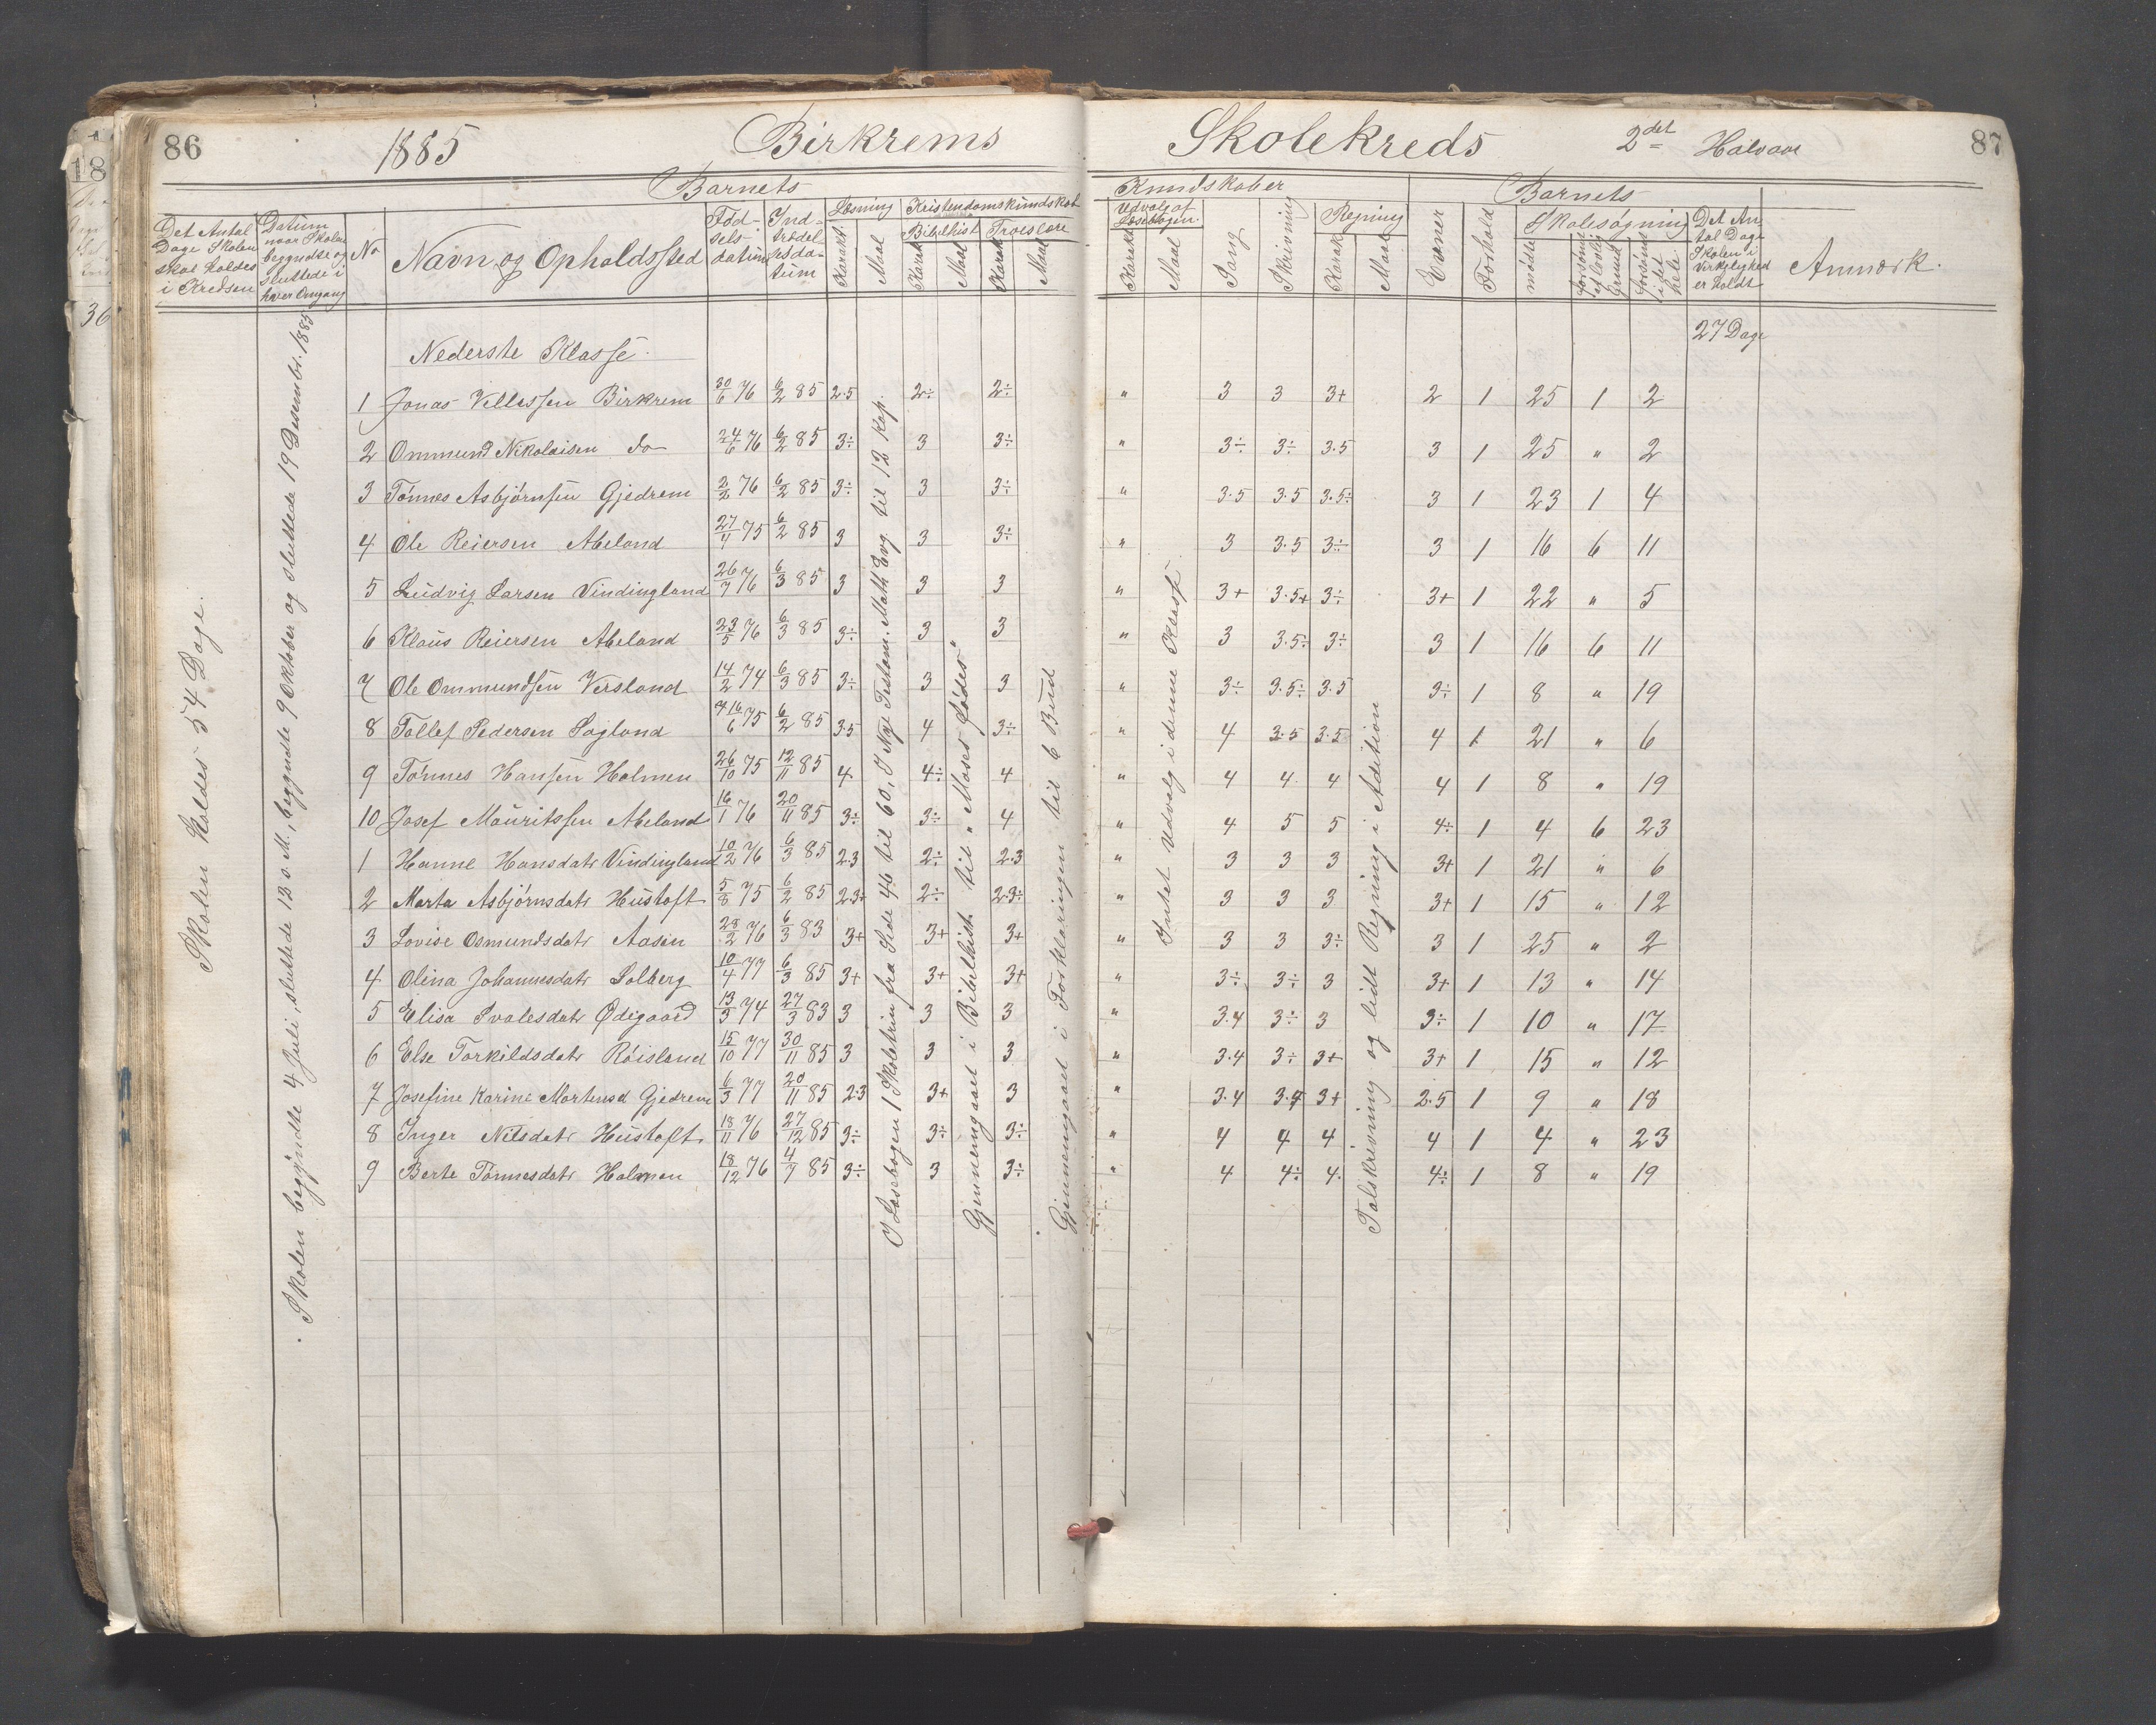 86 1885 Birkrems Skolekreds 2det Halvaar 87
Barnets Kundskaber Barnets
Det Antal Dage Skolen skal holdes i Kredsen
Datum naar Skolen begyndte og sluttede i hver Omgang
No
Navn og Opholdssted
Fødselsdatum
Indtrædelsesdatum
Læsning Karakt. Maal
Kristendomskundskab
Bibelhist Karak Maal
Troeslære Karak Maal
Udvalg af Læsebogen. Karakt Maal
Sang
Skrivning
Regning Karak Maal
Evner
Forhold
Skolesøgning
mødte
forsømt af lovlig Grund
forsømt i det hele
Det Antal Dage Skolen i Virkelighed er holdt
Anmærk.
27 Dage
Skolen holdes 54 Dage.
Skolen begyndte 4 Juli, sluttede 13 o. M., begyndte 9 Oktober og sluttede 19 Desembr. 1885
Nederste Klasse.
1 Jonas Villassen Birkrem 30/6 76 6/2 85 2.5 2÷ 2÷ " 3 3 3+ 2 1 25 1 2
2 Ommund Nikolaisen do 24/6 76 6/2 85 3÷ 3 3÷ " 3÷ 3÷ 3.5 3 1 25 " 2
3 Tönnes Asbjørnsen Gjedrem 2/2 76 6/2 85 3÷ 3 3÷ " 3.5 3.5 3.5÷ 3 1 23 1 4
4 Ole Reiersen Abeland 27/4 75 6/2 85 3 3 3÷ " 3 3.5 3÷ 3 1 16 6 11
5 Ludvig Larsen Vindingland 26/7 76 6/3 85 3 3 3 " 3+ 3.5+ 3÷ 3+ 1 22 " 5
6 Klaus Reiersen Abeland 23/5 76 6/3 85 3÷ 3 3 " 3 3.5÷ 3÷ 3 1 16 6 11
7 Ole Ommundsen Versland 14/2 74 6/3 85 3÷ 3 3 " 3÷ 3.5÷ 3.5 3÷ 1 8 " 19
8 Tollef Pedersen Sagland 16/6 75 6/2 85 3.5 4 3÷ " 4 3.5 3.5 4 1 21 " 6
9 Tönnes Hansen Holmen 26/10 75 12/11 85 4 4÷ 4 " 4 4 4 4 1 8 " 19
10 Josef Mauritssen Abeland 16/1 76 20/11 85 3÷ 3÷ 4 " 4 5 5 4÷ 1 4 6 23
1 Hanne Hansdatr Vindingland 10/2 76 6/3 85 2.3 2÷ 2.3 " 3 3 3 3+ 1 21 " 6
2 Marta Asbjørnsdatr Hustoft 5/8 75 6/2 85 2.3+ 2÷ 2.3÷ " 3 3 3 3+ 1 15 " 12
3 Lovise Osmundsdatr Aasen 28/2 76 6/3 83 3+ 3+ 3+ " 3 3 3÷ 3 1 25 " 2
4 Olina Johannesdatr Solberg 10/4 77 6/3 85 3+ 3+ 3+ " 3÷ 3÷ 3 3+ 1 13 " 14
5 Elisa Svalesdatr Ødegaard 13/3 74 27/3 83 3 3 3 " 3.4 3÷ 3 3÷ 1 10 " 17
6 Else Torkildsdatr Röisland 15/10 77 30/11 85 3 3 3 " 3.4 3÷ 3+ 3+ 1 15 " 12
7 Josefine Karine Martensd Gjedrem 6/3 77 20/11 85 2.3 3+ 3 " 3.4 3.4 3+ 2.5 1 9 " 18
8 Inger Nilsdatr Hustoft 18/11 76 27/12 85 3÷ 3÷ 3÷ " 4 4 4 4 1 4 " 23
9 Berte Tönnesdatr Holmen 18/12 76 4/7 85 3÷ 3 3÷ " 4 4÷ 4 4÷ 1 8 " 19
I Læsebogen 1 Skoletrin fra Side 46 til 60, I Nye Testam. Math Evg. til 12 Kap.
Gjennemgaaet i Bibelhist. til "Moses fødes"
Gjennemgaaet i Forklaringen til 6 Bud
Intet Udvalg i denne Klasse
Talskrivning og lidt Regning i Adition